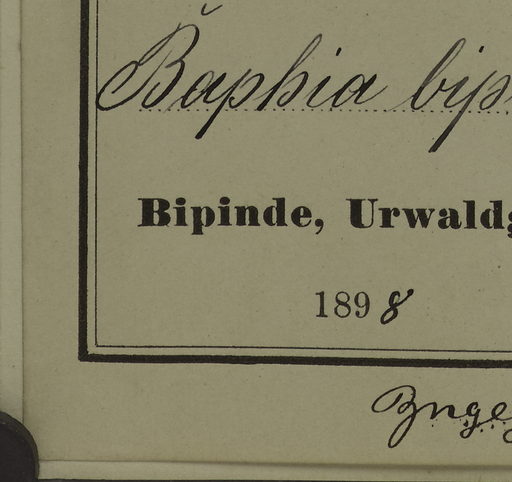 Baphia bip
Bipinde, Urwald
1898